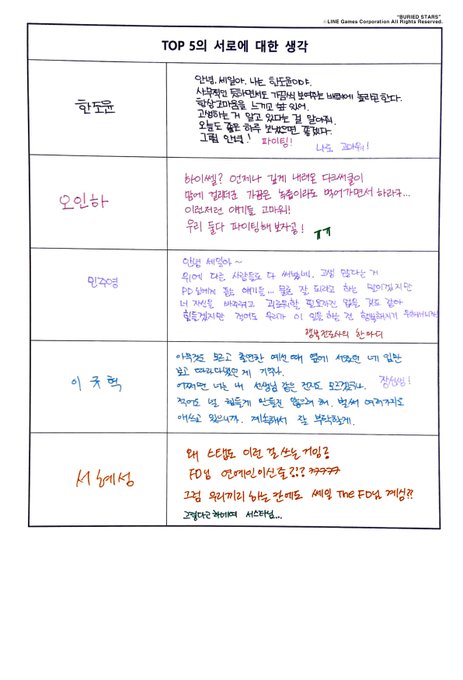 "BURIED STARS"
© LINE Games Corporation All Rights Reserved.
TOP 5의 서로에 대한 생각
한도윤
안녕, 세일아. 나는 한도윤이야.
사무적인 듯하면서도 가끔씩 보여주는 배려에 놀라곤 한다.
항상 고마움을 느끼고 있어.
고생하는 거 알고 있다는 걸 알아줘.
오늘도 좋은 하루 보냈으면 좋겠다.
그럼 안녕! 파이팅!
나도 고마워!
오인하
하이쎌? 언제나 깊게 내려온 다크써클이
맘에 걸리더군 가끔은 녹즙이라도 먹어가면서 하라구...
이런저런 얘기들 고마워!
우리 둘다 파이팅해보자공! ㅠㅠ
민주영
안녕 세일아~
위에 다른 사람들도 다 써놨네. 고생 많다는 거
PD님에게 듣는 얘기들... 물론 잘 되라고 하는 말이겠지만
너 자신을 낮추려고 괴로워할 필요까진 없을 것 같아
힘들겠지만 적어도 우리가 이 일을 하는 건 행복해지기
행복전도사의 한마디
이규혁
아무것도 모르고 출연한 예선 때 옆에 서있던 네 입만
보고 따라다녔던 게 기억나.
어쩌면 너는 내 선생님 같은 건지도 모르겠구나. 잘생김!
적어도 널 힘들게 만들진 않으려 해. 벌써 여러가지로
애쓰고 있으니까. 계속해서 잘 부탁할게.
서혜성
왜 스탭도 이런 걸 쓰는 거임?
FD님 연예인이신줄?!? ㅋㅋㅋㅋㅋ
그럼 우리끼리 하는 칸에도 쎄일 The FD님 계심??
그렇다고 하네여 서스타님...